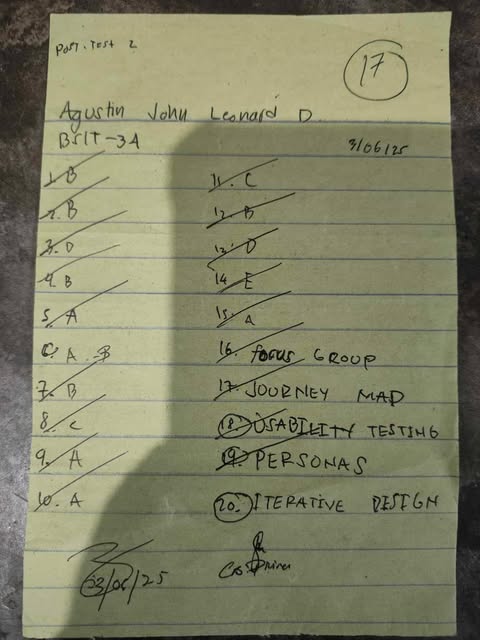 Post-Test 2
17
Agustin John Leonard D
BSIT-3A
3/06/25
1. B
2. B
3. D
4. B
5. A
6. A B
7. B
8. C
9. A
10. A
11. C
12. B
13. D
14. E
15. A
16. focus GROUP
17. JOURNEY MAP
18. USABILITY TESTING
19. PERSONAS
20. ITERATIVE DESIGN
03/06/25